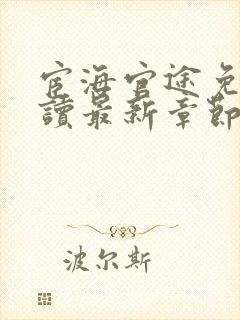 宦海官途免
讀最新章節
波尔斯